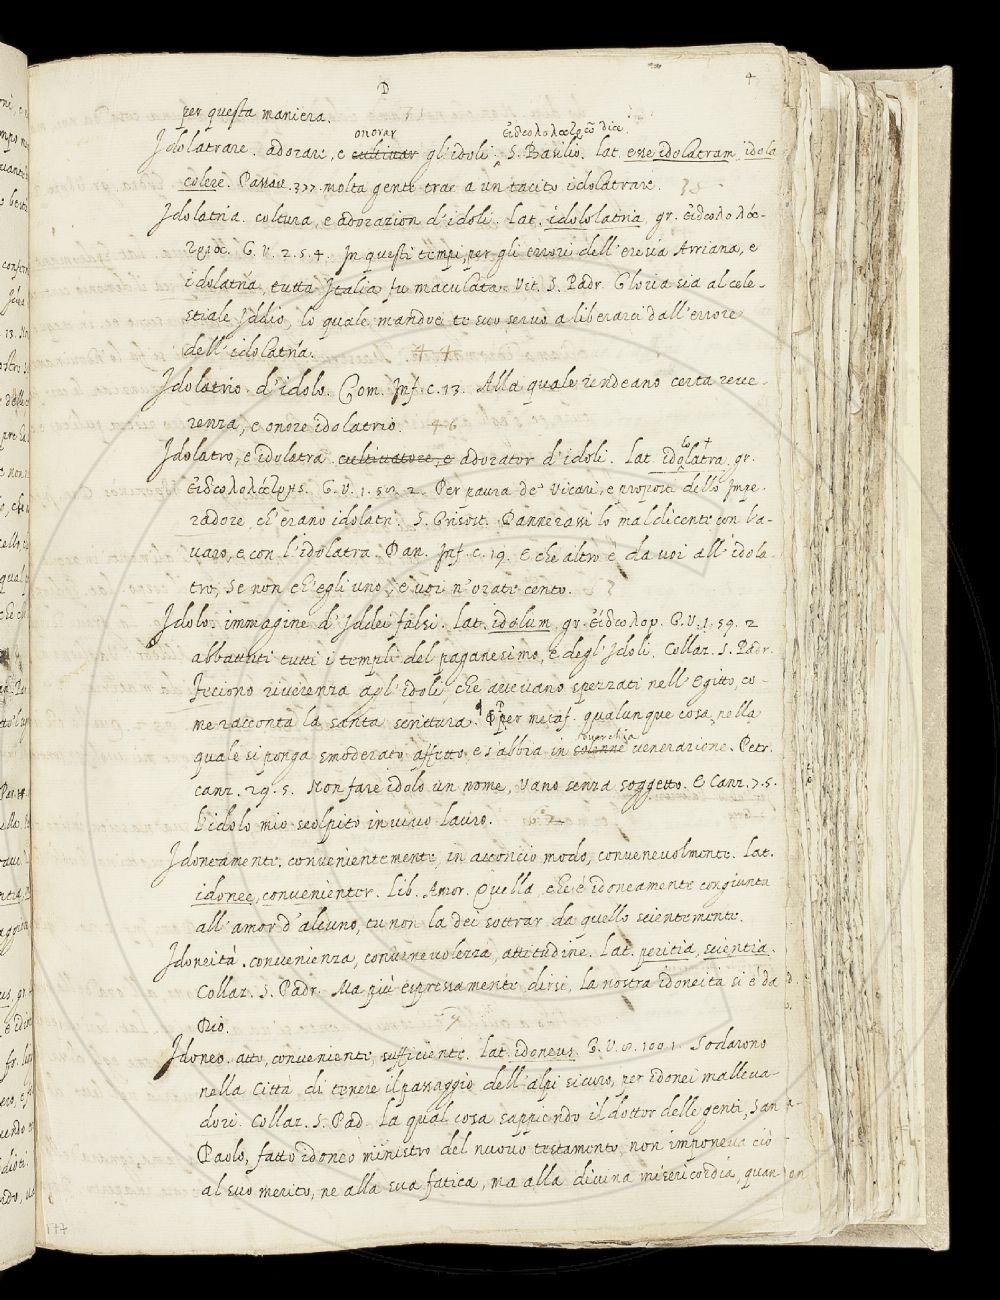 D
4
per questa maniera.
onorar εἰδωλολατρῶ dice
Idolatrare. adorare, e cultivar gl'idoli S. Basilio. lat. esse idolatram, idola
colere. Passav. 377. molta gente trae a un tacito idolatrare.
Idolatria. coltura, e adorazion d'idoli. Lat. idololatria, gr. εἰδωλολά-
τρεια. G. V. 2. 5. 4. In questi tempi, per gli errori dell'eresia Arriana, e
idolatria, tutta Italia fu maculata. Vit. S. Padr. Gloria sia al cele-
stiale Iddio, lo quale manduci te suo servo a liberarci dall'errore
dell'idolatria. 44
Idolatrio. d'idolo. Com. Inf. c. 13. Alla quale rendeano certa reve-
renza, e onore idolatrio. 46
lo
Idolatro, e idolatra. cultivatore, e adorator d'idoli. Lat. idolatra, gr.
εἰδωλολάτρης. G. V. 1. 2. Per paura de' Vicari, e proposti dello Impe-
radore, ch'erano idolatri. S. Grisost. Pannerassi lo maldicente con l'a-
varo, e con l'idolatra. Dan. Inf. c. 19. E che altro è da voi all'idola-
tro, Se non ch'egli uno, e voi n'orate cento.
Idolo. immagine d'Iddei falsi. lat. idolum, gr. εἴδωλον. G. V. 1. 59. 2
abbattuti tutti i templi del paganesimo, e degl'Idoli. Collaz. S. Padr.
Feciono riverenza agl'idoli, che avevano spezzati nell'Egitto, co-
me racconta la santa scrittura. per metaf. qualunque cosa, nella
soverchia
quale si ponga smoderato affetto e s'abbia in solenne venerazione. Petr.
canz. 29. 5. Non fare idolo un nome, Vano senza soggetto. E Canz. 7. 5.
l'idolo mio scolpito in vivo lauro.
Idoneamente. convenientemente, in acconcio modo, convenevolmente. Lat.
idonee, convenienter. Lib. Amor. Quella, che è idoneamente congiunta
all'amor d'alcuno, tu non la dei sottrar da quello scientemente.
Idoneità. convenienza, convenevolezza, attitudine. Lat. peritia, scientia.
Collaz. S. Padr. Ma più espressamente dirsi, La nostra idoneità si è da
Dio.
Idoneo. atto, conveniente, sufficiente. Lat. idoneus. G. V. 100. 1. Sodarono
nella Città di tenere il passaggio dell'alpi sicuro, per idonei malleva-
dori. Collaz. S. Pad. La qual cosa sappiendo il dottor delle genti, San
Paolo, fatto idoneo ministro del nuovo testamento, non imponeva ciò
al suo merito, ne alla sua fatica, ma alla divina misericordia, quan
177